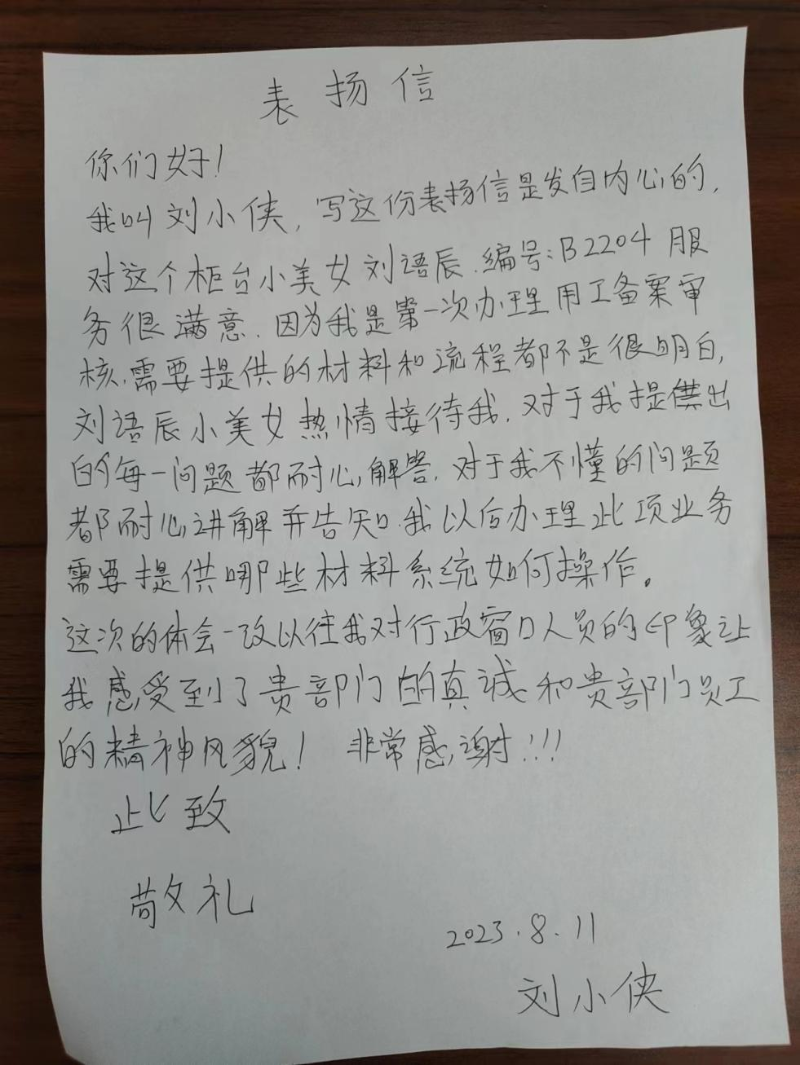 表扬信
你们好！
我叫刘小侠，写这份表扬信是发自内心的，
对这个柜台小美女刘语辰.编号:B2204服
务很满意.因为我是第一次办理用工备案审
核.需要提供的材料和流程都不是很明白，
刘语辰小美女热情接待我.对于我提供出
的每一问题都耐心解答.对于我不懂的问题
都耐心讲解并告知我以后办理此项业务
需要提供哪些材料系统如何操作。
这次的体会一改以往我对行政窗口人员的印象让
我感受到了贵部门的真诚和贵部门员工
的精神风貌！ 非常感谢!!!
此致
敬礼
2023.8.11
刘小侠